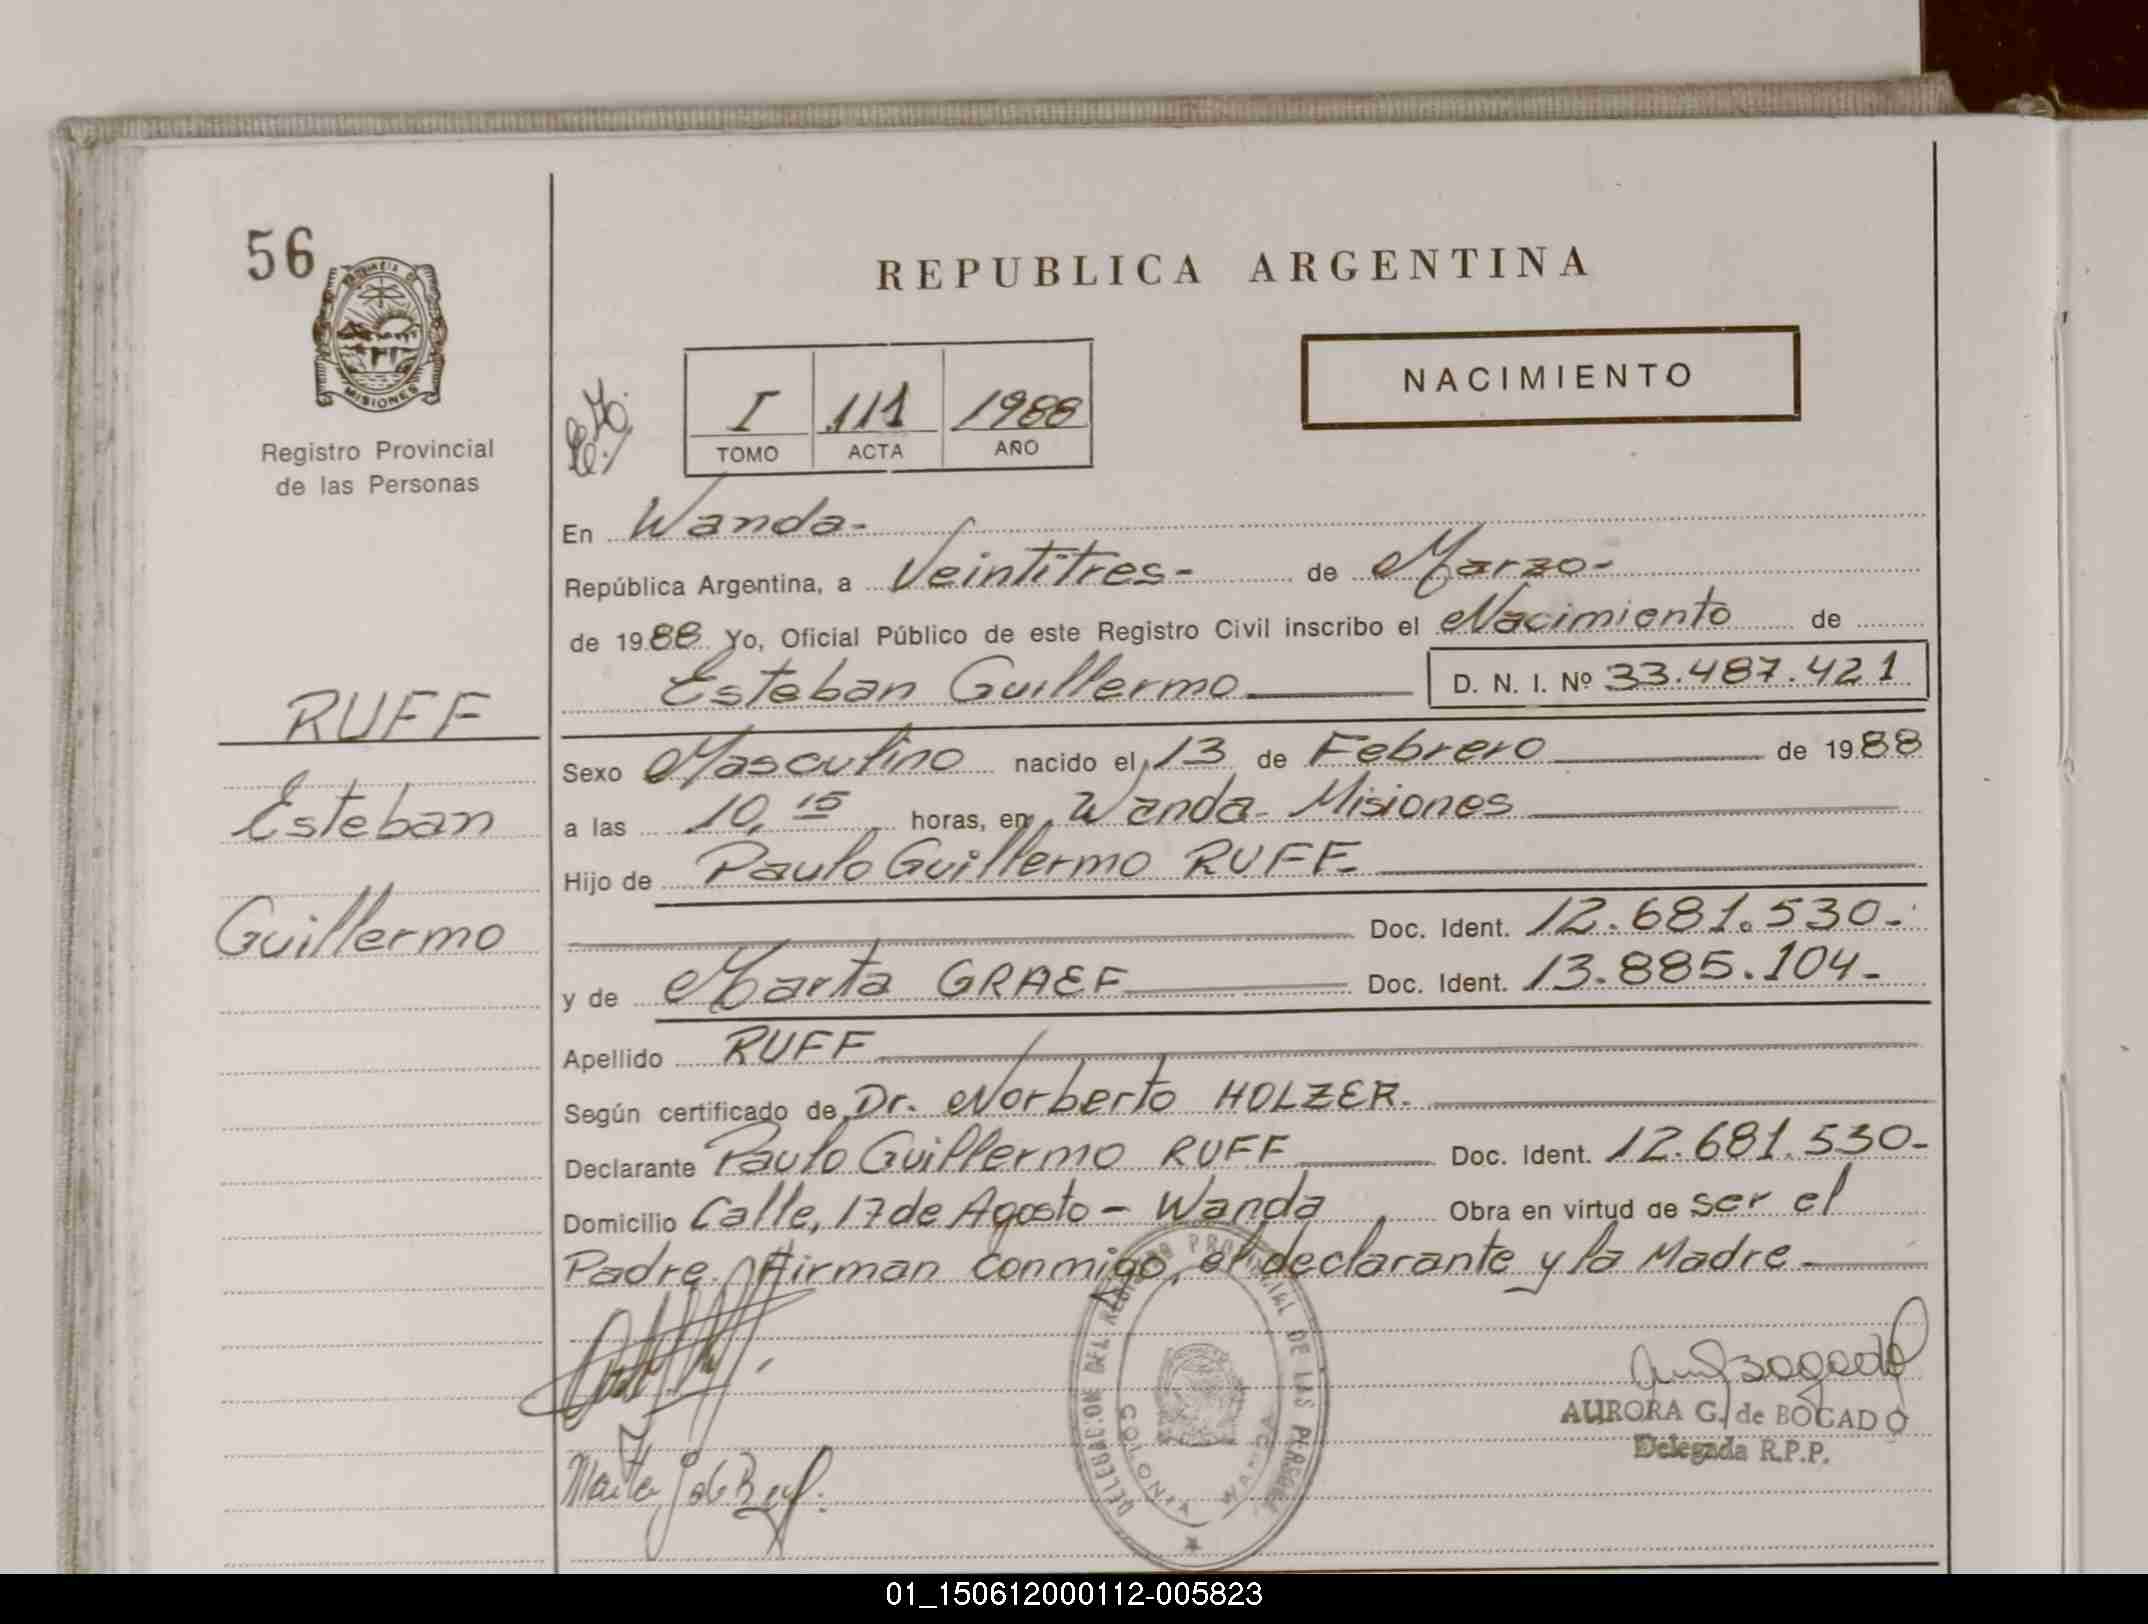 56
PROVINCIA DE
MISIONES
Registro Provincial
de las Personas
RUFF
Esteban
Guillermo
REPUBLICA ARGENTINA
NACIMIENTO
I 111 1988
TOMO ACTA AÑO
En Wanda-
República Argentina, a Veintitres- de Marzo-
de 1988 Yo, Oficial Público de este Registro Civil inscribo el Nacimiento de
Esteban Guillermo D. N. I. Nº 33.487.421
Sexo Masculino nacido el 13 de Febrero de 1988
a las 10,15 horas, en Wanda- Misiones
Hijo de Paulo Guillermo RUFF-
Doc. Ident. 12.681.530-
y de Marta GRAEF Doc. Ident. 13.885.104-
Apellido RUFF
Según certificado de Dr. Norberto HOLZER.
Declarante Paulo Guillermo RUFF Doc. Ident. 12.681.530-
Domicilio Calle, 17 de Agosto - Wanda Obra en virtud de ser el
Padre. Firman conmigo, el declarante y la Madre-
DELEGACION DEL REGISTRO PROVINCIAL DE LAS PERSONAS
COLONIA WANDA
AURORA G. de BOGADO
Delegada R.P.P.
01_150612000112-005823